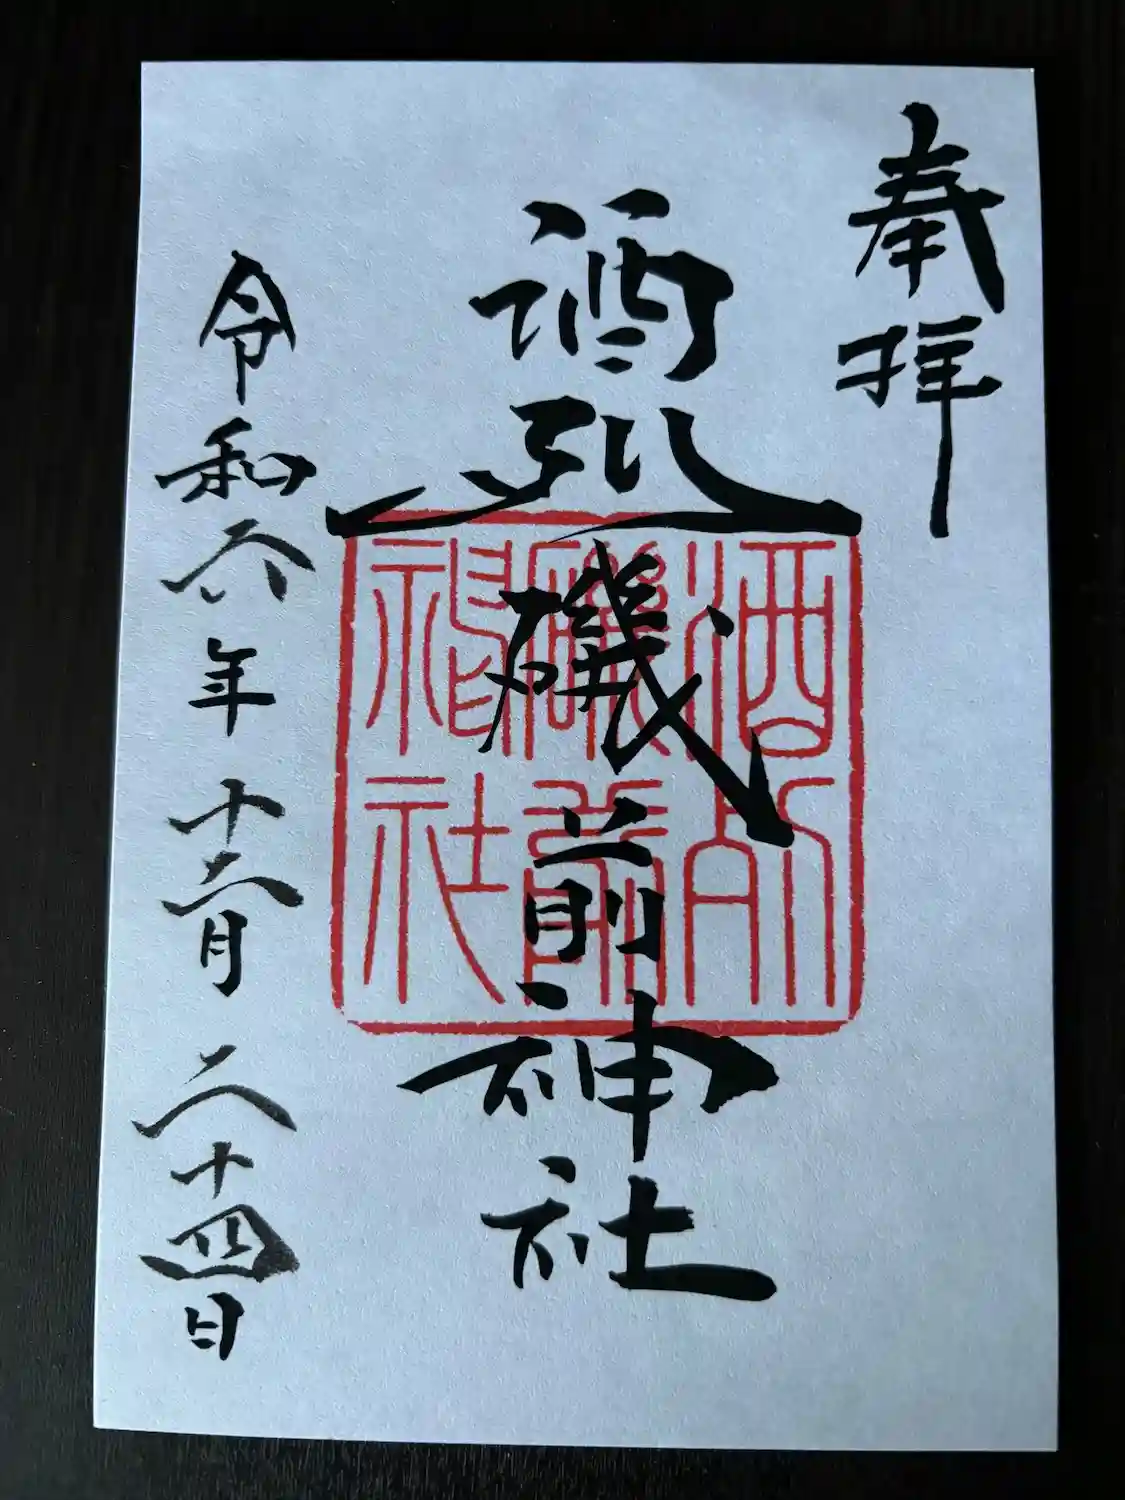 奉拝
酒列磯前神社
酒列
磯前
神社
令和六年十二月二十四日